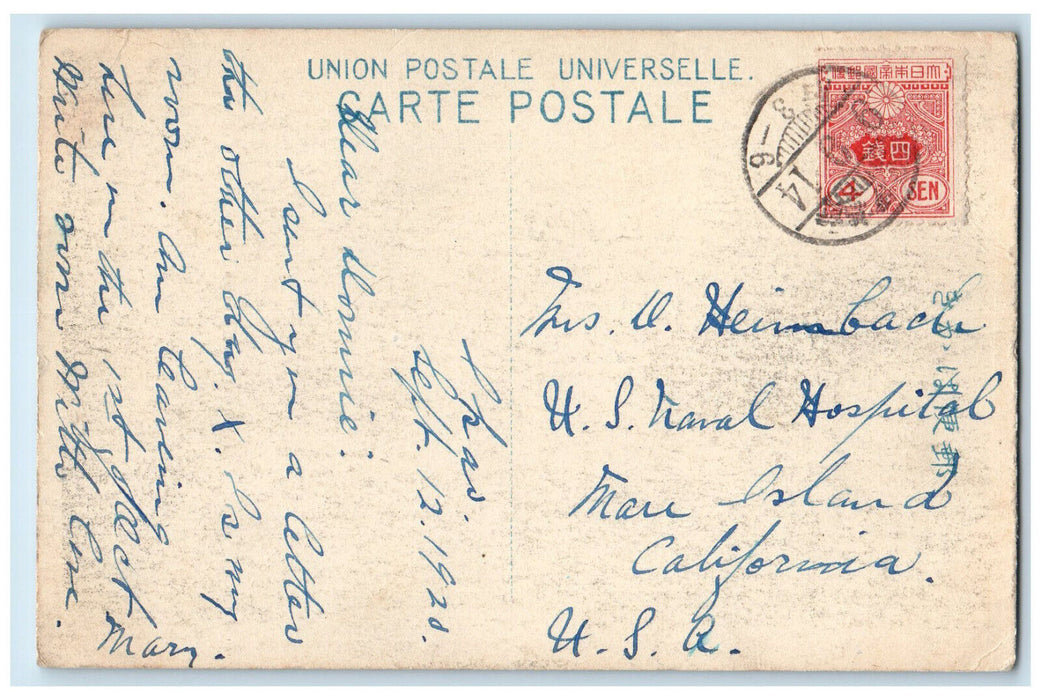 UNION POSTALE UNIVERSELLE.
CARTE POSTALE
大日本帝國郵便
四銭
4 SEN
3-6
14
Sept. 12. 1920.
Dear
I sent you a letter
the other day. X. Is my
room. Am leaving
here on the 1st of Oct.
Write soon. With love.
Mary.
Mrs. D. Heimbach
U. S. Naval Hospital
Mare Island
California.
U. S. A.